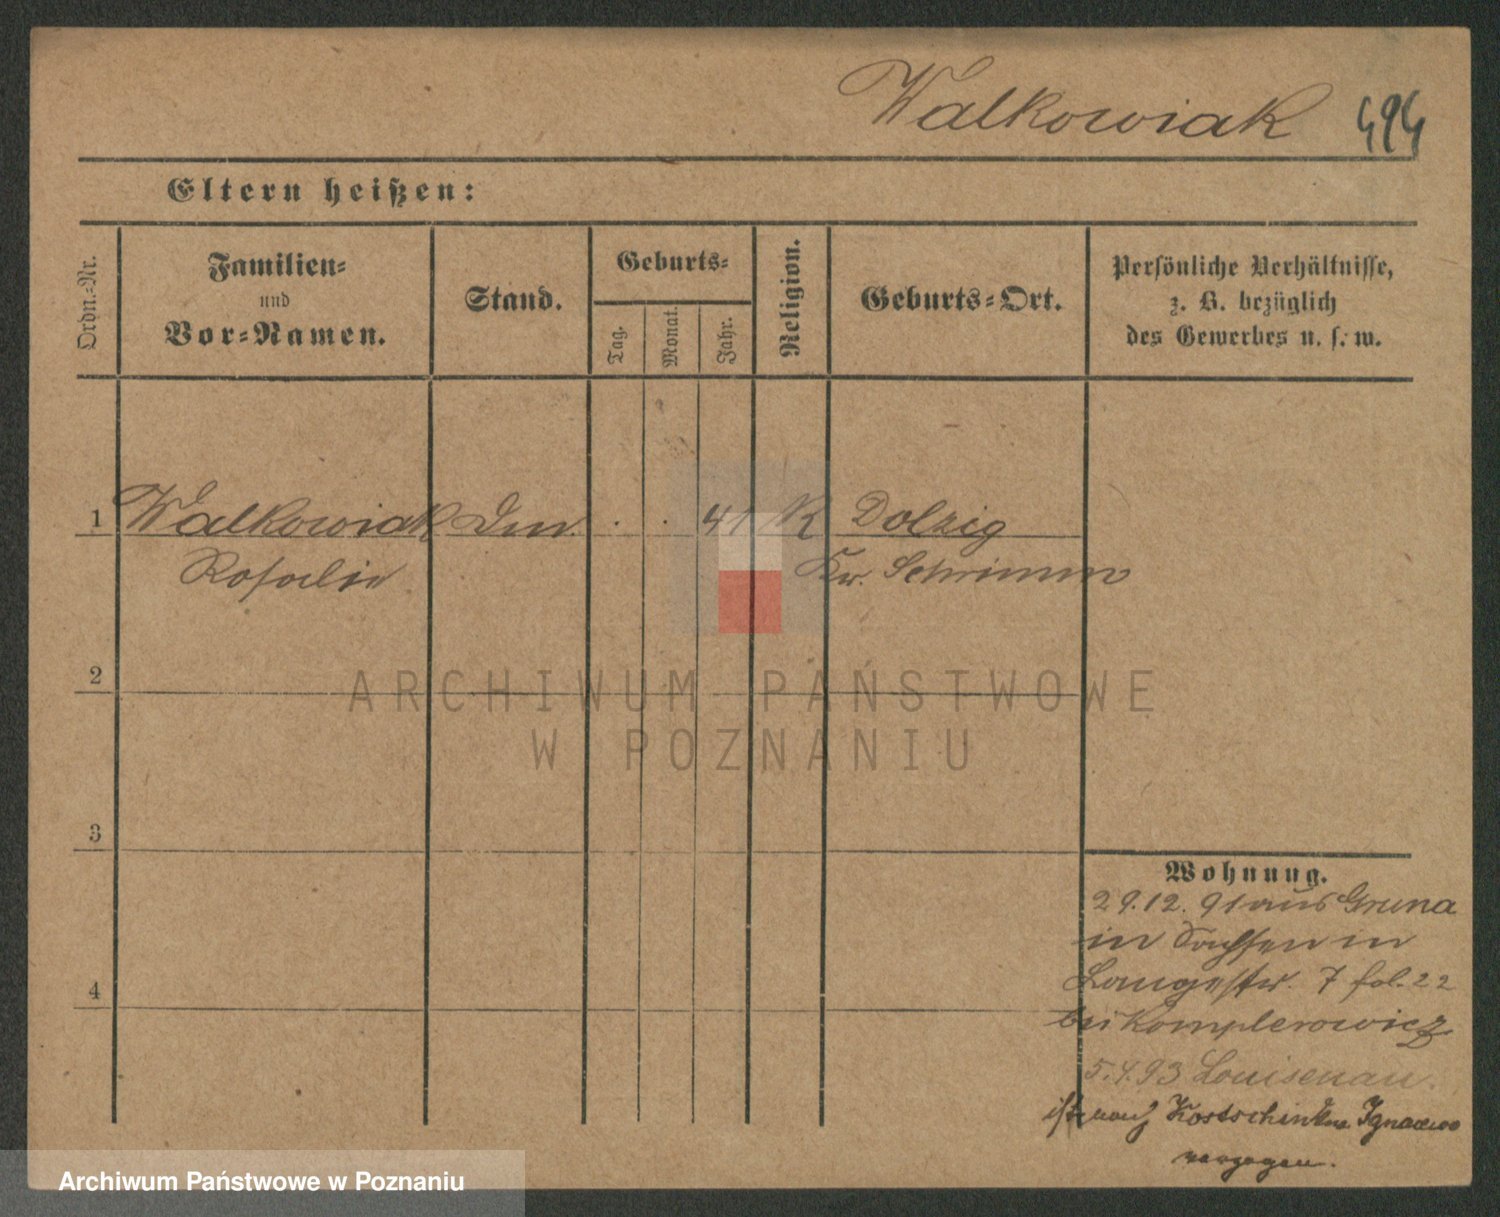 Walkowiak 494
Eltern heißen:
Ordn.-Nr.
Familien-
und
Vor-Namen.
Stand.
Geburts-
Tag.
Monat.
Jahr.
Religion.
Geburts-Ort.
Persönliche Verhältnisse,
z. B. bezüglich
des Gewerbes u. s. w.
1 Walkowiak . . 41 K Dolzig
Rosalie Kr. Schrimm
2
3
4
Wohnung.
29.12. 91 aus Gruna
in Sachsen in
Langestr. 7 fol. 22
bei Komplerowicz
5.4.93 Louisenau.
ist nach Kostschin Ignacewo
verzogen.
ARCHIWUM PAŃSTWOWE
W POZNANIU
Archiwum Państwowe w Poznaniu